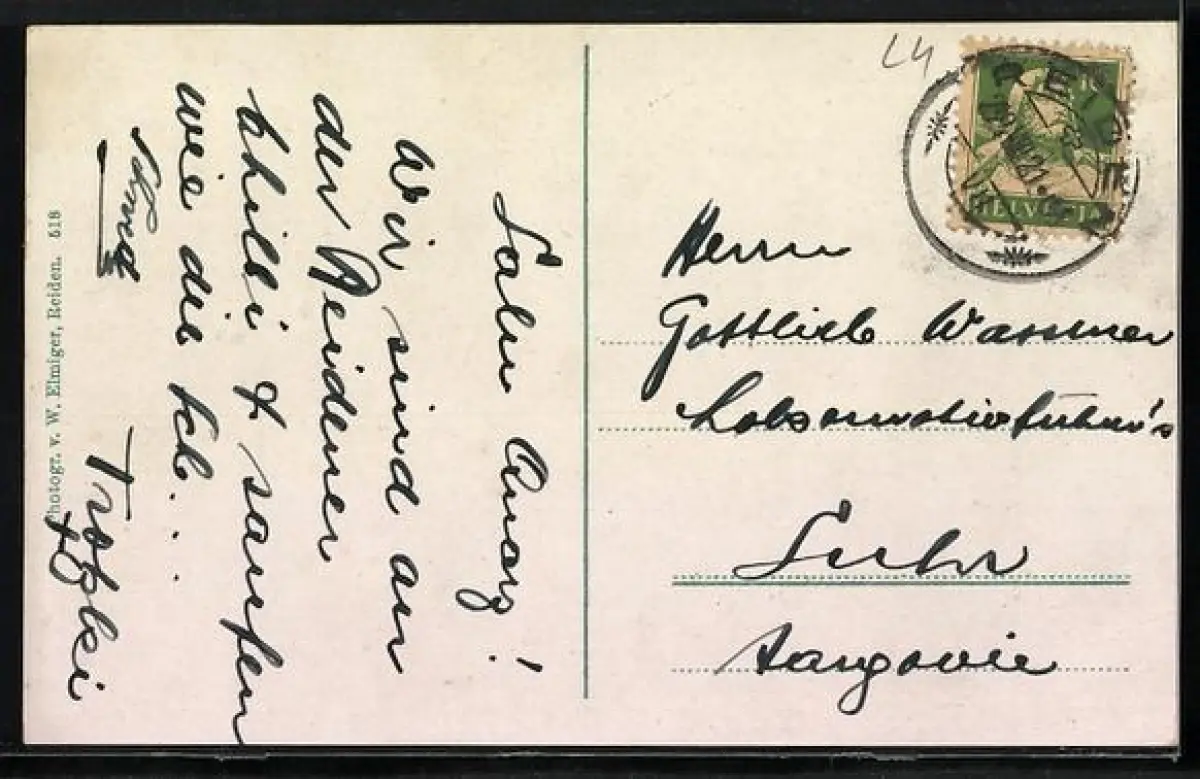 Salu
Wir sind an
der Reidener
Chilbi & saufen
wie die Ich...
Trotzki
Photogr. v. W. Elmiger, Reiden. 518
L4
HELVETIA
Herrn
Gottlieb Wassmer
Lokomotivführer's
Suhr
Aargovie